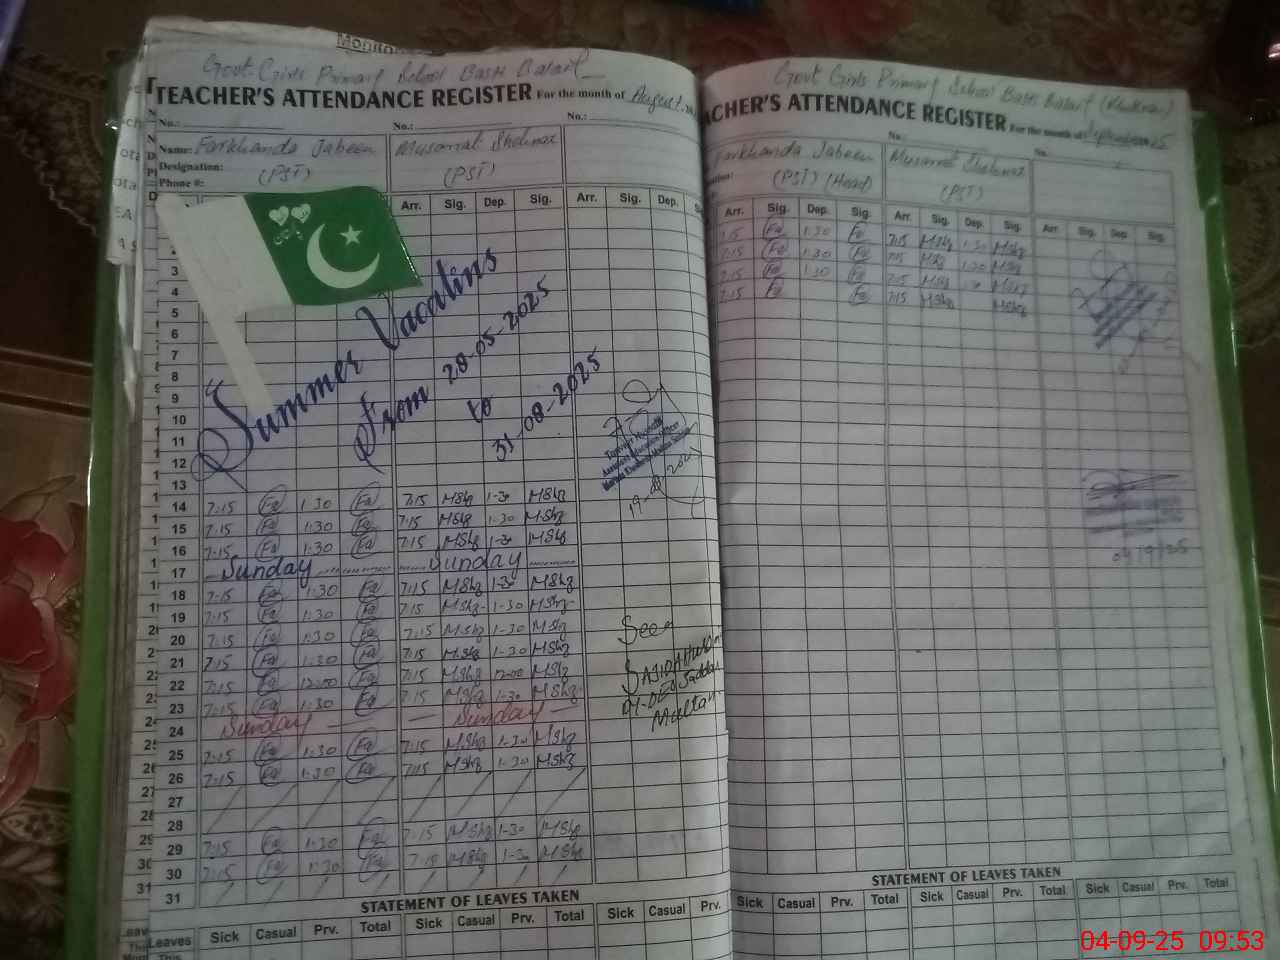 Govt. Girls Primary School Basti Balail
TEACHER'S ATTENDANCE REGISTER For the month of August
No.: No.: No.:
Name: Farkhanda Jabeen Musarrat Shehnaz
Designation: (PST) (PST)
Phone #:
Arr. Sig. Dep. Sig. Arr. Sig. Dep.
3
4
5
6
7
8
9
10
11
12
13
Summer Vacatins
From 28-05-2025
to
31-08-2025
19-08-2025
14 7:15 Fa 1:30 Fa 7:15 MShz 1-30 MShz
15 7:15 Fa 1:30 Fa 7:15 MShz 1-30 MShz
16 7:15 Fa 1:30 Fa 7:15 MShz 1-30 MShz
17 Sunday Sunday
18 7:15 Fa 1:30 Fa 7:15 MShz 1-30 MShz
19 7:15 Fa 1:30 Fa 7:15 MShz 1-30 MShz
20 7:15 Fa 1:30 Fa 7:15 MShz 1-30 MShz
21 7:15 Fa 1:30 Fa 7:15 MShz 1-30 MShz
22 7:15 Fa 12:00 Fa 7:15 MShz 12:00 MShz
23 7:15 Fa 1:30 Fa 7:15 MShz 1-30 MShz
24 Sunday Sunday
25 7:15 Fa 1:30 Fa 7:15 MShz 1-30 MShz
26 7:15 Fa 1:30 Fa 7:15 MShz 1-30 MShz
27
28
29 7:15 Fa 1:30 Fa 7:15 MShz 1-30 MShz
30 7:15 Fa 1:30 Fa 7:15 MShz 1-30 MShz
31
Seen
Multan
STATEMENT OF LEAVES TAKEN
Leaves Sick Casual Prv. Total Sick Casual Prv. Total Sick Casual Prv.
Govt Girls Primary School Basti Balail
TEACHER'S ATTENDANCE REGISTER For the month of
No. No.
Farkhanda Jabeen Musarrat Shehnaz
(PST) (Head) (PST)
Arr. Sig. Dep. Sig. Arr. Sig. Dep. Sig. Arr. Sig. Dep. Sig.
7:15 Fa 1:30 Fa 7:15 MShz 1-30 MShz
7:15 Fa 1:30 Fa 7:15 MShz 1-30 MShz
7:15 Fa 1:30 Fa 7:15 MShz MShz
7:15 Fa Fa 7:15 MShz MShz
STATEMENT OF LEAVES TAKEN
Sick Casual Prv. Total Sick Casual Prv. Total Sick Casual Prv. Total
04-09-25 09:53